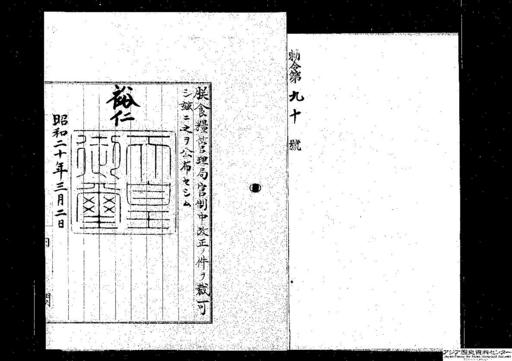 勅令第九十號
朕食糧管理局官制中改正ノ件ヲ裁可
シ茲ニ之ヲ公布セシム
裕仁
天皇御璽
昭和二十年三月二日
内閣
アジア歴史資料センター